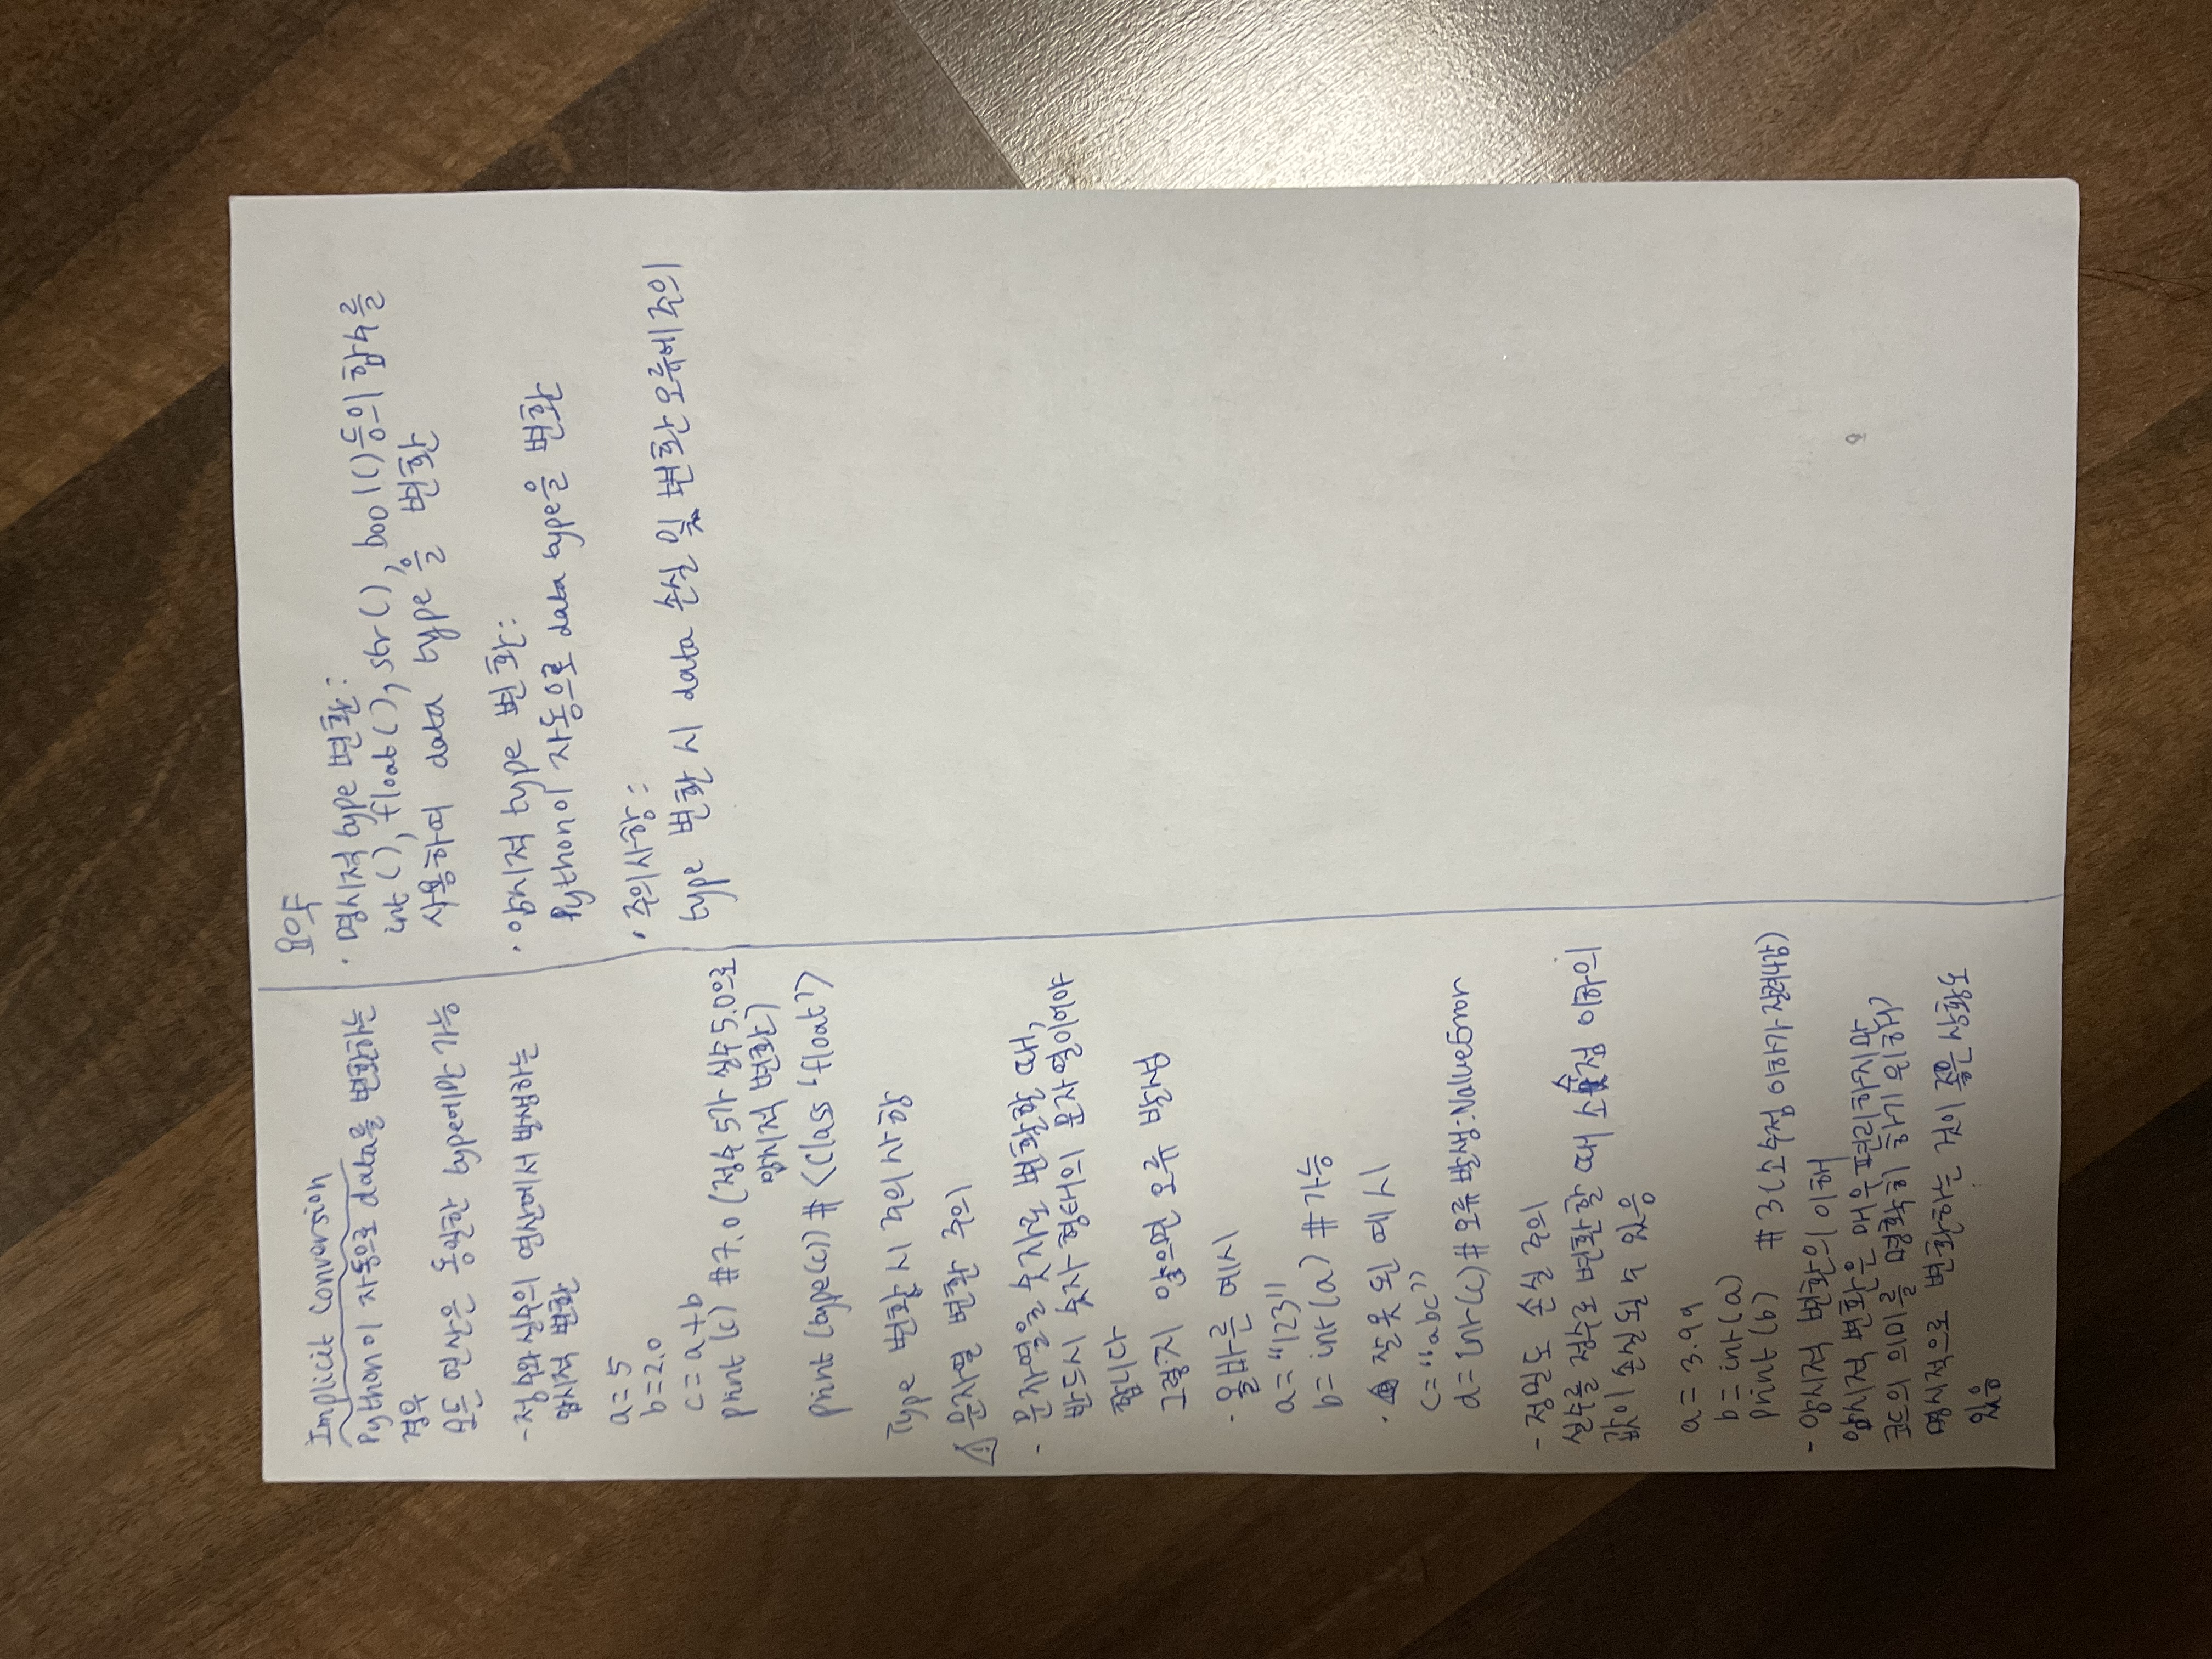 Implicit Conversion
Python이 자동으로 data을 변환하는
경우
모든 연산은 동일한 type에만 가능
- 정수와 실수의 연산에서 발생하는
암시적 변환
a = 5
b = 2.0
c = a + b
print (c) #7.0 (정수 5가 실수 5.0으로
암시적 변환)
print (type(c)) # <class 'float'>
Type 변환 시 주의 사항
⚠ 문자열 변환 주의
· 문자열을 숫자로 변환할 때,
반드시 숫자 형태의 문자열이어야
합니다
그렇지 않으면 오류 발생
· 올바른 예시
a = "123"
b = int (a) # 가능
· 잘못된 예시
c = "abc"
d = int (c) # 오류 발생: ValueError
- 정밀도 손실 주의
실수를 정수로 변환할 때 소숫점 이하의
값이 손실될 수 있음
a = 3.99
b = int (a)
print (b) # 3 (소수점 이하가 잘려나감)
- 암시적 변환의 이해
암시적 변환은 매우 편리하지만
코드의 의미를 명확히 하기 위해서
명시적으로 변환하는 것이 좋은 상황도
있음
요약
· 명시적 type 변환:
int ( ), float ( ), str ( ), bool ( ) 등의 함수를
사용하여 data type을 변환
· 암시적 type 변환:
Python이 자동으로 data type을 변환
· 주의사항:
type 변환 시 data 손실 및 변환 오류에 주의